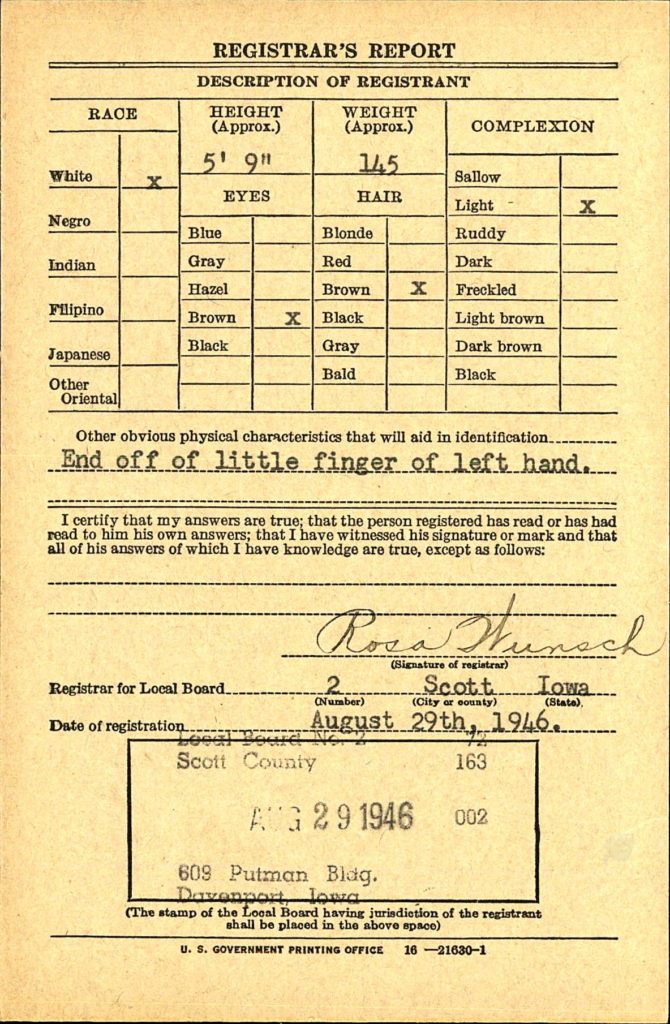 REGISTRAR'S REPORT
DESCRIPTION OF REGISTRANT
RACE
HEIGHT
(Approx.)
WEIGHT
(Approx.)
COMPLEXION
5' 9"
145
White x
EYES
HAIR
Sallow
Light - X
Negro
Blue
Blonde
Ruddy
Indian
Gray
Red
Dark
Hazel
Brown X
Freckled
Filipino
Brown X
Black
Light brown
Japanese
Black
Gray
Dark brown
Other
Oriental
Bald
Black
Other obvious physical characteristics that will aid in identification
End off of little finger of left hand.
I certify that my answers are true; that the person registered has read or has had
read to him his own answers; that I have witnessed his signature or mark and that
all of his answers of which I have knowledge are true, except as follows:
Rosa Wunsch
(Signature of registrar)
Registrar for Local Board 2 Scott Iowa
(Number) (City or county) (State)
Date of registration August 29th, 1946.
Local Board No. 2 72
Scott County 163
AUG 29 1946 002
609 Putman Bldg.
Davenport, Iowa
(The stamp of the Local Board having jurisdiction of the registrant
shall be placed in the above space)
U. S. GOVERNMENT PRINTING OFFICE 16—21630-1